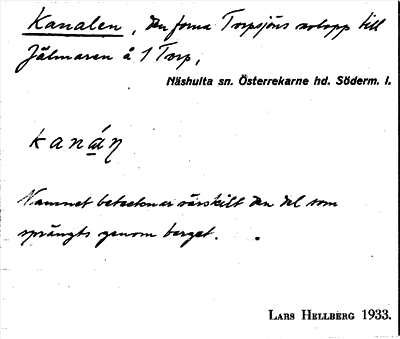 Kanalen, den forna Torpsjöns avlopp till
Hjälmaren å 1 Torp,
Näshulta sn. Österrekarne hd. Söderm. l.
kanán
Namnet betecknar särskilt den del som
sprängts genom berget.
LARS HELLBERG 1933.